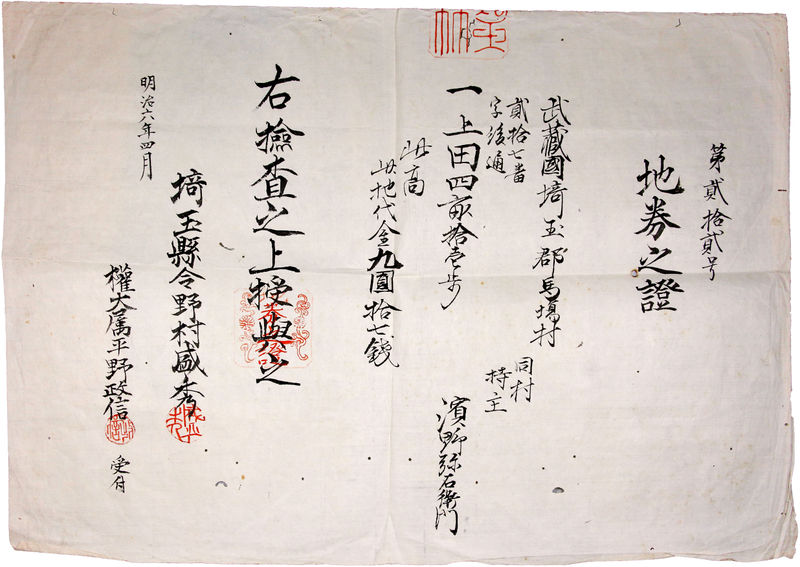 第貳拾貳号
地券之證
武藏國埼玉郡馬場村
貳拾七番
字後通
一上田四畝拾壱歩
同村
持主
濱野弥右衛門
此高
此地代金九圓拾七錢
右檢査之上授與之
埼玉縣令野村盛秀
權大属平野政信
受付
明治六年四月